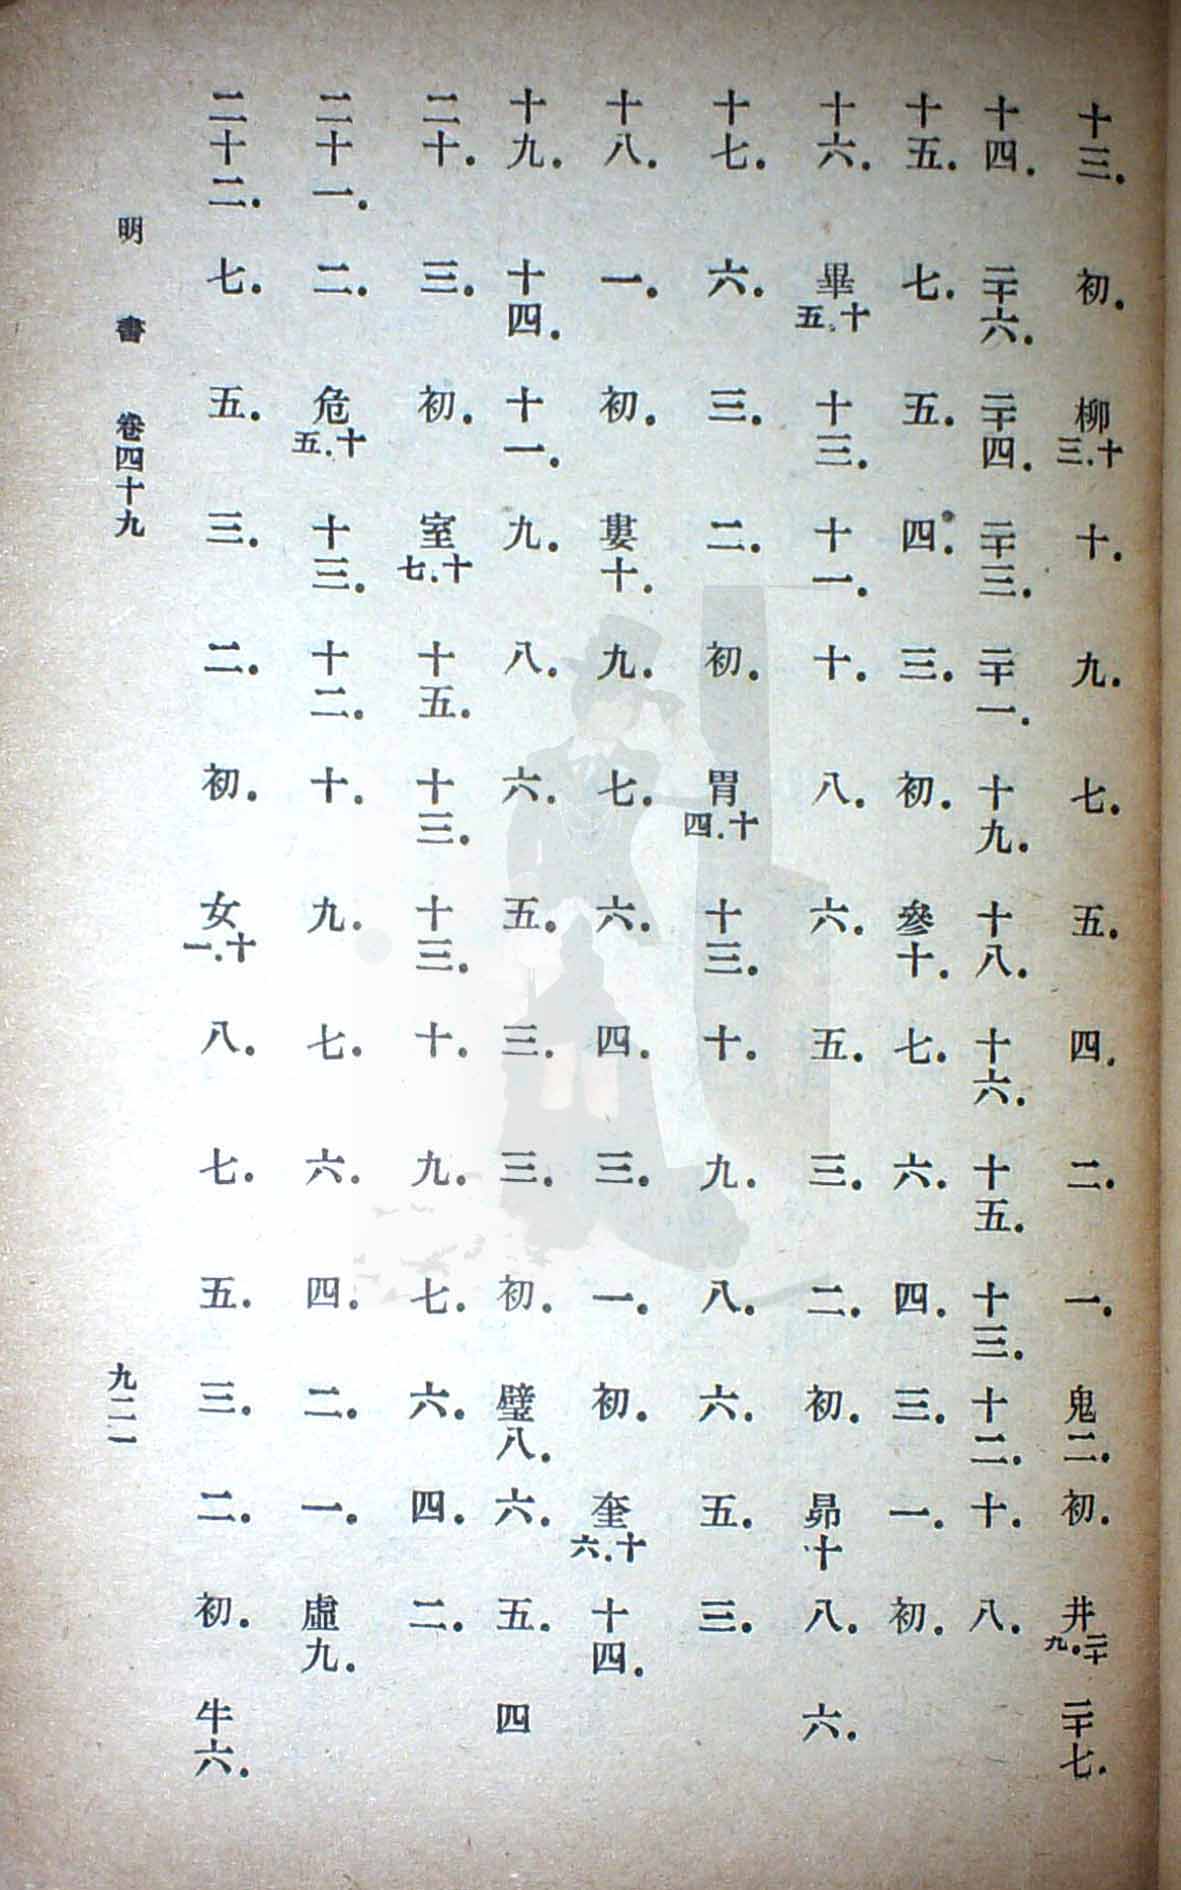 十三．初．柳十三．十．九．七．五．四．二．一．鬼二．初．井二十九．二十七．
十四．二十六．二十四．二十三．二十一．十九．十八．十六．十五．十三．十二．十．八．
十五．七．五．四．三．初．參十．七．六．四．三．一．初．
十六．畢十五．十三．十一．十．八．六．五．三．二．初．昴十．八．六．
十七．六．三．二．初．胃十四．十三．十．九．八．六．五．三．
十八．一．初．婁十．九．七．六．四．三．一．初．奎十六．十四．
十九．十四．十一．九．八．六．五．三．三．初．璧八．六．五．四
二十．三．初．室十七．十五．十三．十三．十．九．七．六．四．二．
二十一．二．危十五．十三．十二．十．九．七．六．四．二．一．虛九．
二十二．七．五．三．二．初．女十一．八．七．五．三．二．初．牛六．
明書 卷四十九 九二一